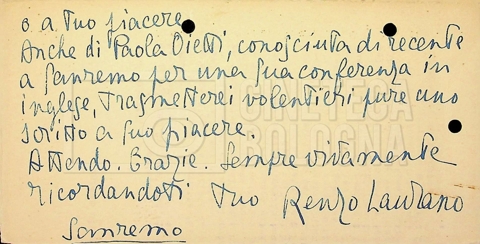 o a tuo piacere.
Anche di Paola Vietti, conosciuta di recente
a Sanremo per una sua conferenza in
inglese, trasmetterei volentieri pure uno
scritto a suo piacere.
Attendo. Grazie. Sempre vivamente
ricordandoti tuo Renzo Laurano
Sanremo
CINETECA
BOLOGNA